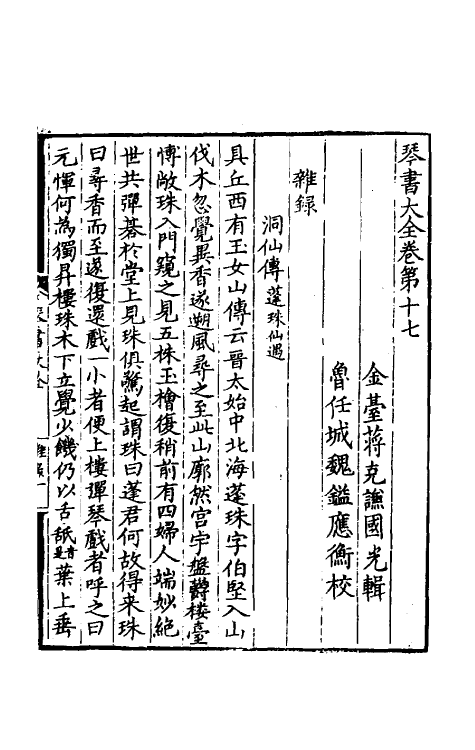 琴書大全卷第十七
金臺蔣克謙國光輯
魯任城魏鎰應衡校
雜錄
洞仙傳蓬珠仙遇
具丘西有玉女山傳云晉太始中北海蓬珠字伯堅入山
伐木忽覺異香遂朔風尋之至此山廓然宫宇盤欝樓臺
愽敞珠入門窺之見五株玉檜復稍前有四婦人端妙絶
世共彈碁於堂上見珠俱驚起謂珠曰蓬君何故得来珠
曰尋香而至遂復還戲一小者便上樓彈琴戲者呼之曰
元惲何為獨昇樓珠木下立覺少饑仍以舌舐葉上垂